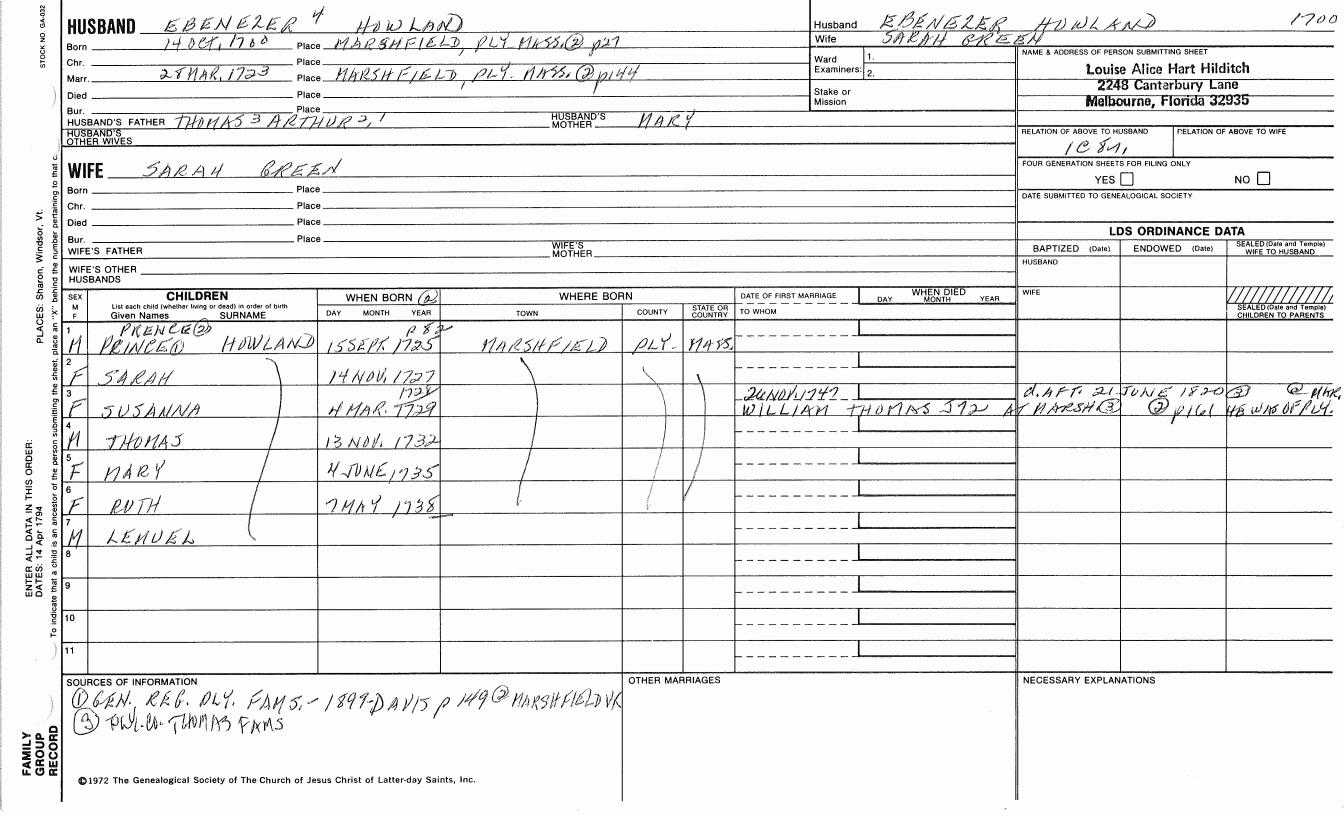 STOCK NO. GA-032
HUSBAND EBENEZER 4 HOWLAND
Born 14 OCT, 1700 Place MARSHFIELD, PLY MASS. ② p27
Chr. Place
Marr. 28 MAR, 1723 Place MARSHFIELD, PLY. MASS. ② p144
Died Place
Bur. Place
HUSBAND'S FATHER THOMAS 3 ARTHUR 2, 1 HUSBAND'S MOTHER MARY
HUSBAND'S OTHER WIVES
WIFE SARAH GREEN
Born Place
Chr. Place
Died Place
Bur. Place
WIFE'S FATHER WIFE'S MOTHER
WIFE'S OTHER HUSBANDS
Husband EBENEZER HOWLAND 1700
Wife SARAH GREEN
Ward Examiners: 1.
2.
Stake or Mission
NAME & ADDRESS OF PERSON SUBMITTING SHEET
Louise Alice Hart Hilditch
2248 Canterbury Lane
Melbourne, Florida 32935
RELATION OF ABOVE TO HUSBAND RELATION OF ABOVE TO WIFE
1C 8R,
FOUR GENERATION SHEETS FOR FILING ONLY
YES NO
DATE SUBMITTED TO GENEALOGICAL SOCIETY
LDS ORDINANCE DATA
BAPTIZED (Date) ENDOWED (Date) SEALED (Date and Temple) WIFE TO HUSBAND
HUSBAND
WIFE
SEALED (Date and Temple) CHILDREN TO PARENTS
SEX M F
CHILDREN
List each child (whether living or dead) in order of birth
Given Names SURNAME
WHEN BORN ②
DAY MONTH YEAR
WHERE BORN
TOWN COUNTY STATE OR COUNTRY
DATE OF FIRST MARRIAGE
TO WHOM
WHEN DIED
DAY MONTH YEAR
1 PRENCE ② p 82
M PRINCE ① HOWLAND 15 SEPT. 1725 MARSHFIELD PLY. MASS.
2
F SARAH 14 NOV, 1727
3 1728 26 NOV, 1747 d. AFT. 21 JUNE 1820 ③ ②
F SUSANNA 4 MAR. 1729 WILLIAM THOMAS J92 AT MARSH ③ ② p161 HE WAS OF PLY.
4
M THOMAS 13 NOV. 1732
5
F MARY 4 JUNE, 1735
6
F RUTH 7 MAY 1738
7
M LEMUEL
8
9
10
11
SOURCES OF INFORMATION
① GEN. REG. PLY. FAMS. - 1899-DAVIS p 149 ② MARSHFIELD VR
③ PLY. CO. THOMAS FAMS
OTHER MARRIAGES
NECESSARY EXPLANATIONS
©1972 The Genealogical Society of The Church of Jesus Christ of Latter-day Saints, Inc.
PLACES: Sharon, Windsor, Vt.
ENTER ALL DATA IN THIS ORDER:
DATES: 14 Apr 1794
To indicate that a child is an ancestor of the person submitting the sheet, place an "X" behind the number pertaining to that c.
FAMILY
GROUP
RECORD